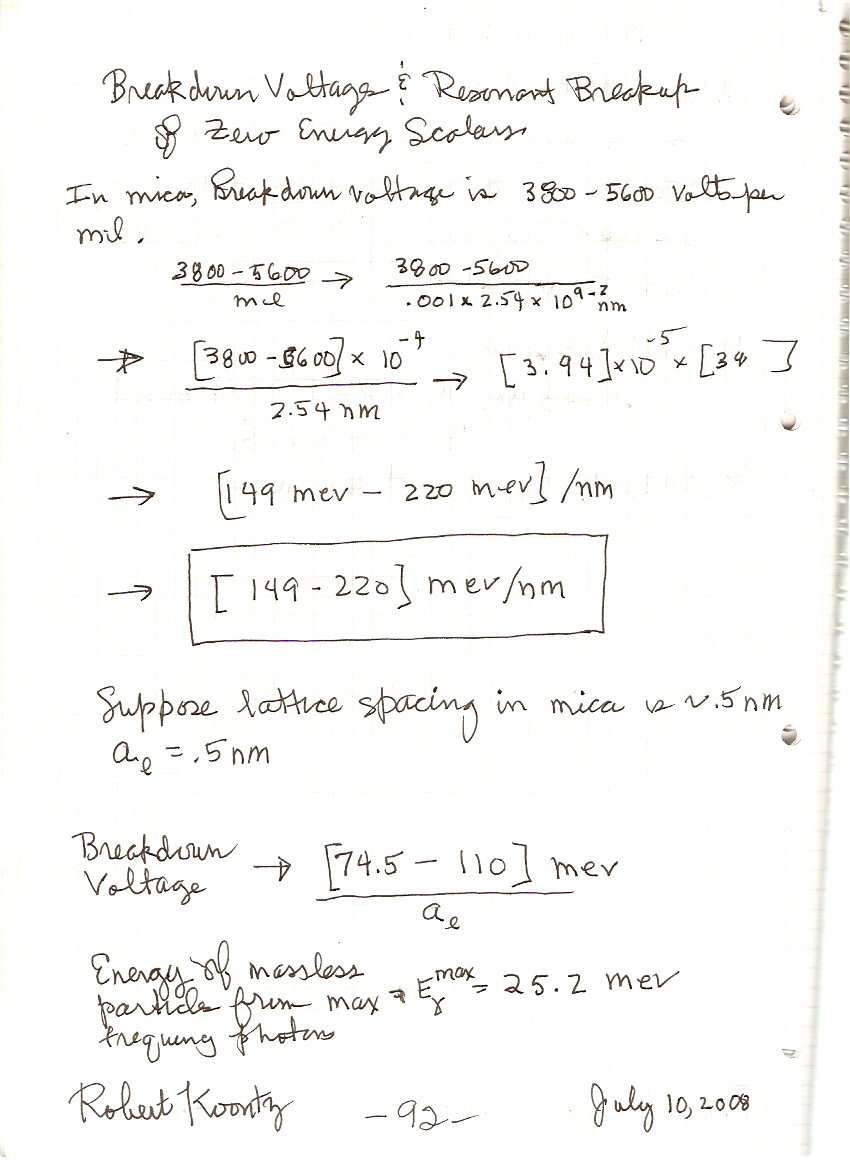 Breakdown Voltage & Resonant Breakup
of Zero Energy Scalars
In mica, Breakdown voltage is 3800 - 5600 Volts per
mil.
3800 - 5600 / mil → 3800 - 5600 / .001 x 2.54 x 10^9-2 nm
→ [3800 - 5600] x 10^-4 / 2.54 nm → [3.94] x 10^-5 x [38 ]
→ [149 mev - 220 mev] /nm
→ [149 - 220] mev/nm
Suppose lattice spacing in mica is ~.5nm
a_l = .5nm
Breakdown
Voltage → [74.5 - 110] mev / a_l
Energy of massless
particle from max = E_γ^max = 25.2 mev
frequency photons
Robert Koontz -92- July 10, 2008